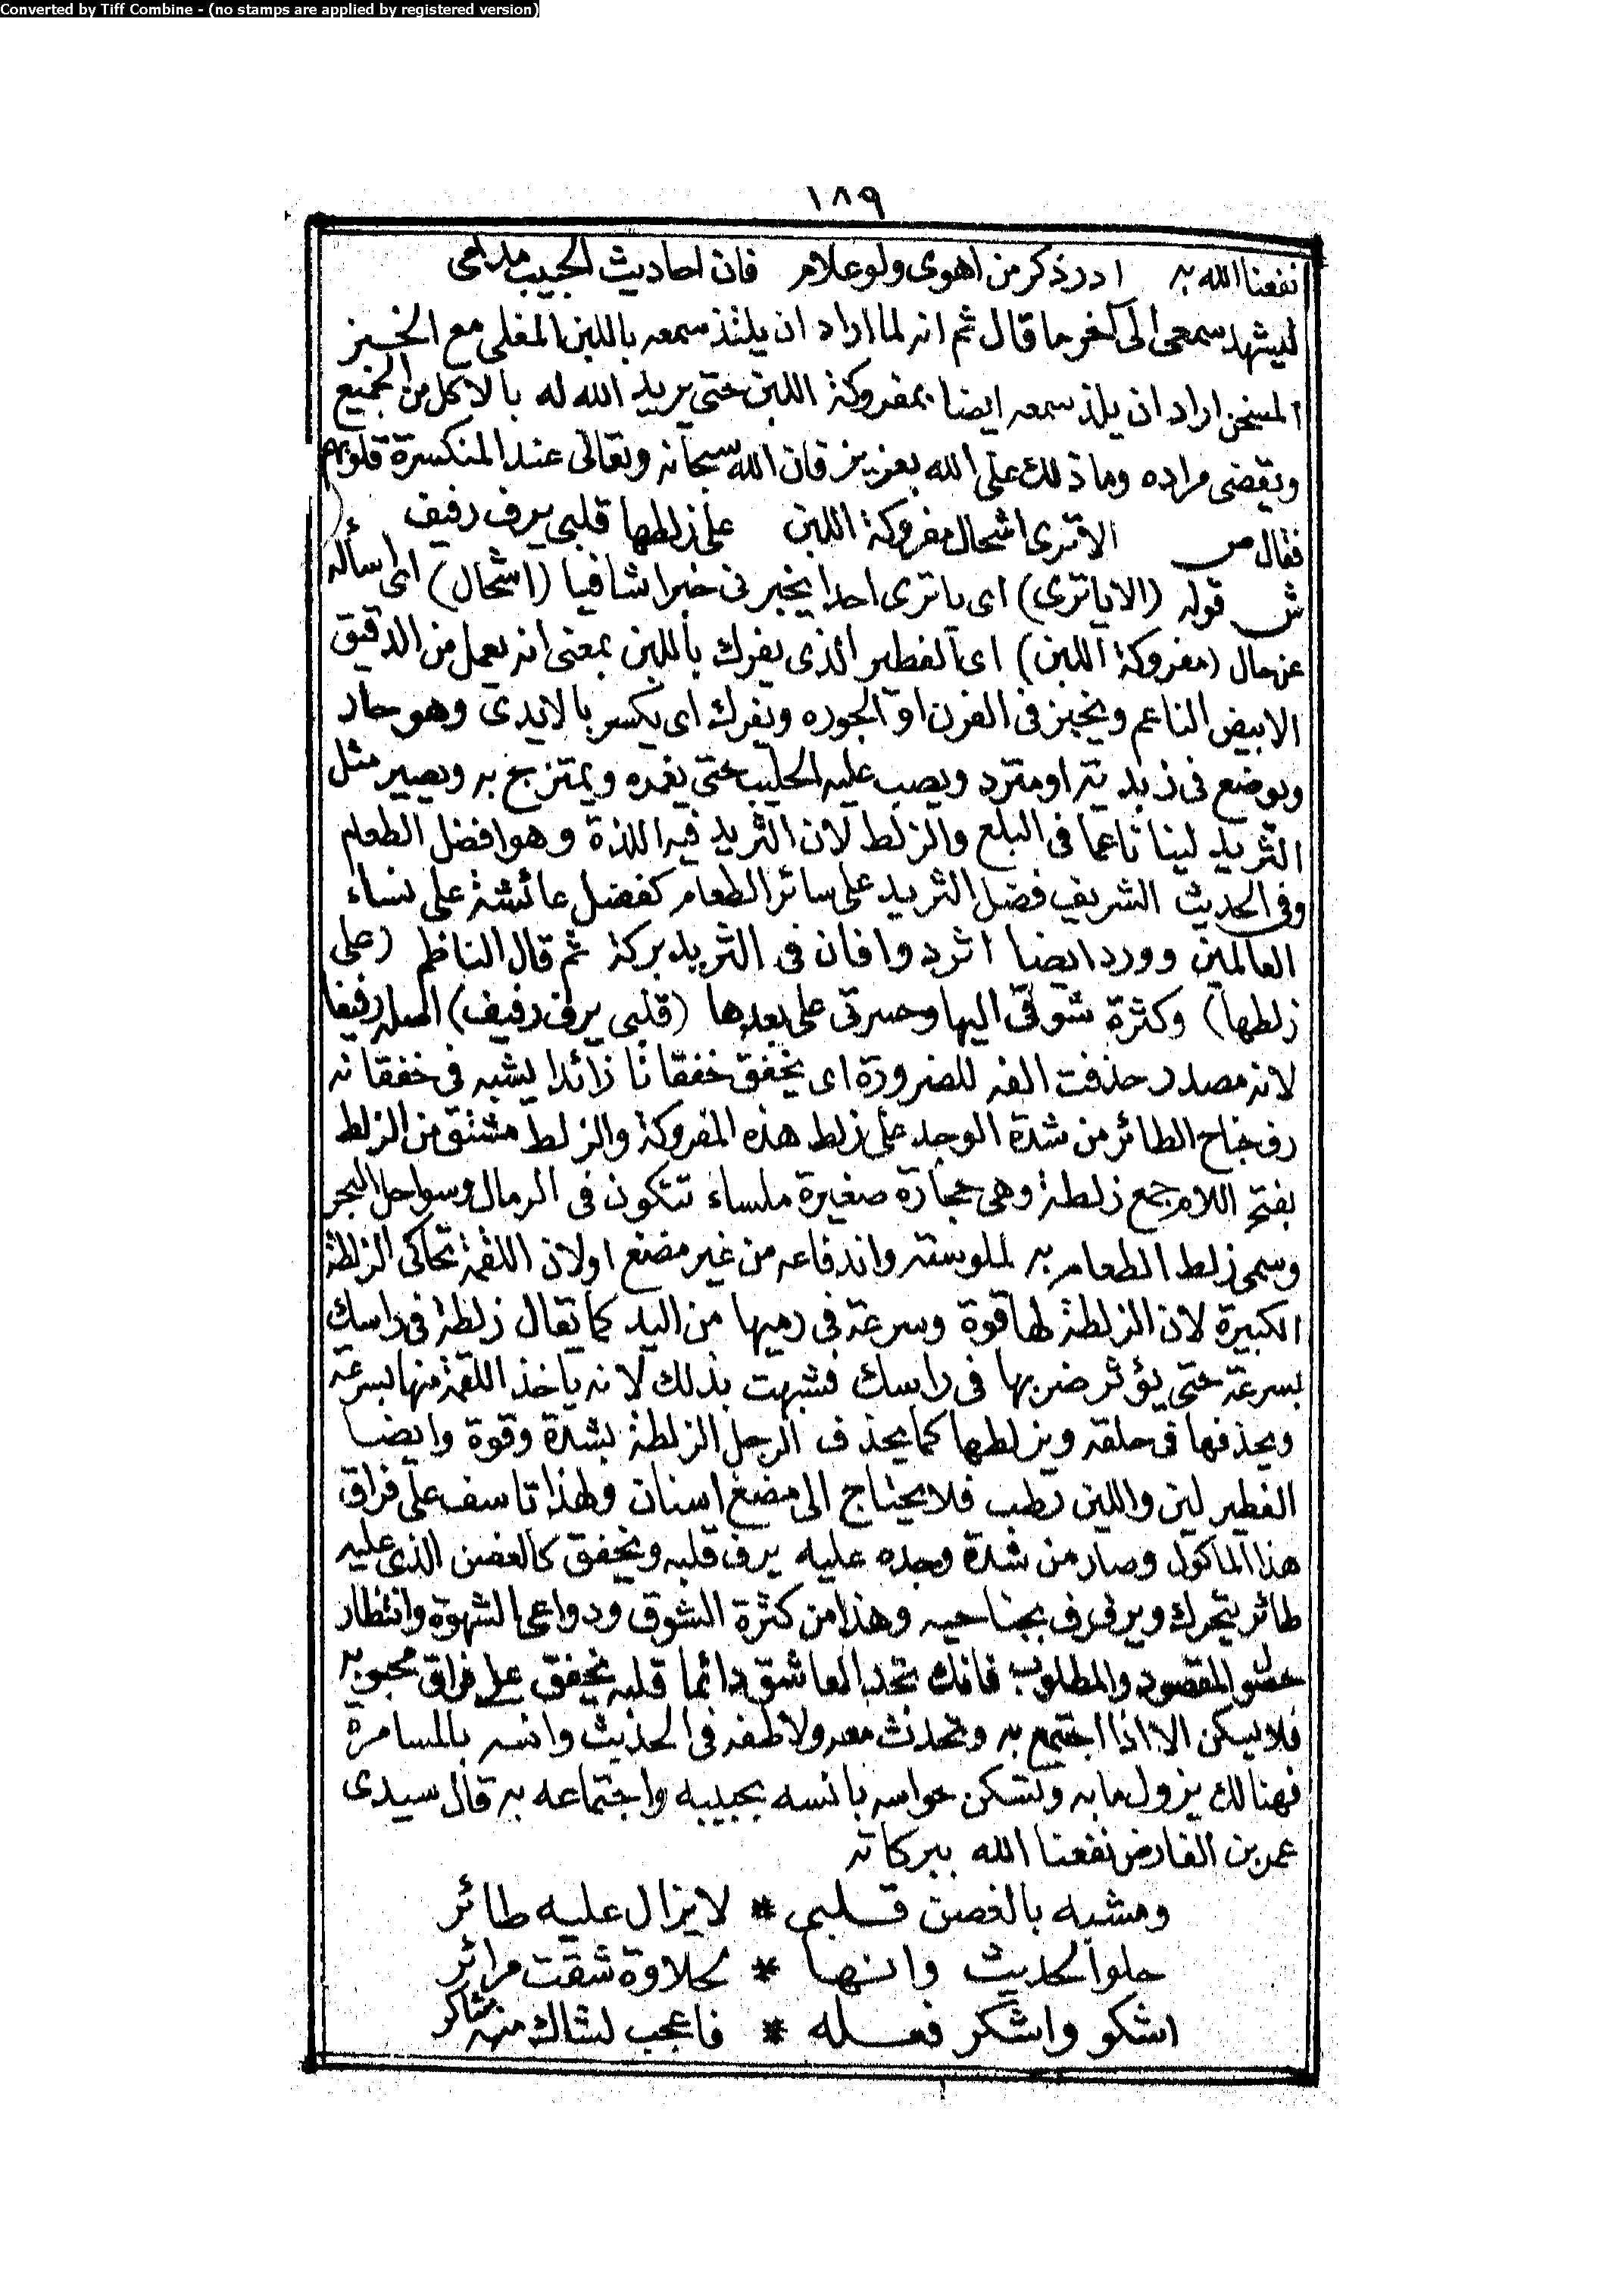 Converted by Tiff Combine - (no stamps are applied by registered version)
١٨٩
نفعنا الله به ادر ذكر من اهوى ولو علام فان احاديث الحبيب مدامى
ليشهد سمعى الى آخر ما قال ثم انه لما اراد ان يلتذ سمعه باللبن المغلى مع الخبز
المسخن اراد ان يلذ سمعه ايضا بمفروكة اللبن حتى يريد الله له بالاكل من الجميع
ويقضى مراده وما ذلك على الله بعزيز فان الله سبحانه وتعالى عند المنكسرة قلوبهم
فقال ص الا ترى اشحال مفروكة اللبن على زلطها قلبى يرف رفيف
ش قوله (الا يا ترى) اى يا ترى احدا يخبرنى خبرا شافيا (اشحال) اى اسأله
عن حال (مفروكة اللبن) اى الفطير الذى يفرك باللبن بمعنى انه يعمل من الدقيق
الابيض الناعم ويخبز فى الفرن او الجوره ويفرك اى يكسر بالايدى وهو حار
ويوضع فى زبديته او مترد ويصب عليه الحليب حتى يغمره ويمتزج به ويصير مثل
الثريد لينا ناعما فى البلع والزلط لان الثريد فيه اللذة وهو افضل الطعام
وفى الحديث الشريف فضل الثريد على سائر الطعام كفضل عائشة على نساء
العالمين وورد ايضا اثردوا فان فى الثريد بركة ثم قال الناظم (على
زلطها) وكثرة شوقى اليها وحسرتى على بعدها (قلبى يرف رفيف) اصله رفيفا
لانه مصدر حذفت الفه للضرورة اى يخفق خفقانا زائدا يشبه فى خفقانه
رف جناح الطائر من شدة الوجد على زلط هذه المفروكة والزلط مشتق من الزلط
بفتح اللام جمع زلطة وهى حجارة صغيرة ملساء تتكون فى الرمال وسواحل البحر
وسمى زلط الطعام به لملوسته واندفاعه من غير مضغ او لان اللقمة تحاكى الزلطة
الكبيرة لان الزلطة لها قوة وسرعة فى رميها من اليد كما يقال زلطة فى راسك
بسرعة حتى يؤثر ضربها فى راسك فشبهت بذلك لانه ياخذ اللقمة منها بسرعة
ويحذفها فى حلقه ويزلطها كما يحذف الرجل الزلطة بشدة وقوة وايضا
الفطير لين واللبن رطب فلا يحتاج الى مضغ اسنان ولهذا تاسف على فراق
هذا الماكول وصار من شدة وجده عليه يرف قلبه ويخفق كالغصن الذى عليه
طائر يتحرك ويرفرف بجناحيه وهذا من كثرة الشوق ودواعى الشهوة وانتظار
المقصود والمطلوب فانك تجد العاشق دائما قلبه يخفق على فراق محبوبه
فلا يسكن الا اذا اجتمع به وتحدث معه ولاطفه فى الحديث وانسه بالمسامرة
فهنالك يزول ما به وتسكن حواسه بانسه بحبيبه واجتماعه به قال سيدى
عمر بن الفارض نفعنا الله ببركاته
ومشبه بالغصن قلبى * لا يزال عليه طائر
حلو الحديث وانها * لحلاوة شقت مرائر
اشكو واشكر فعله * فاعجب لشاك منه شاكر